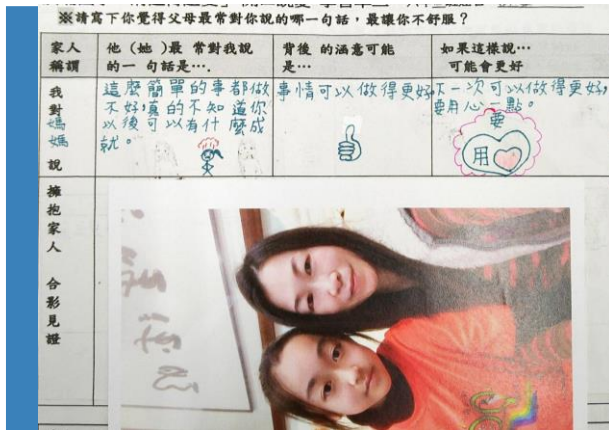 ※請寫下你覺得父母最常對你說的哪一句話，最讓你不舒服？
家人
稱謂
他（她）最 常對我說
的一 句話是….
背後 的涵意可能
是…
如果這樣說…
可能會更好
我
對
媽
媽
說
這麼簡單的事都做
不好,真的不知 道你
以後可以有什 麼成
就。
事情可以做得更好
下一次可以做得更好,
要用心一點。
要
用
擁
抱
家
人
合
影
見
證